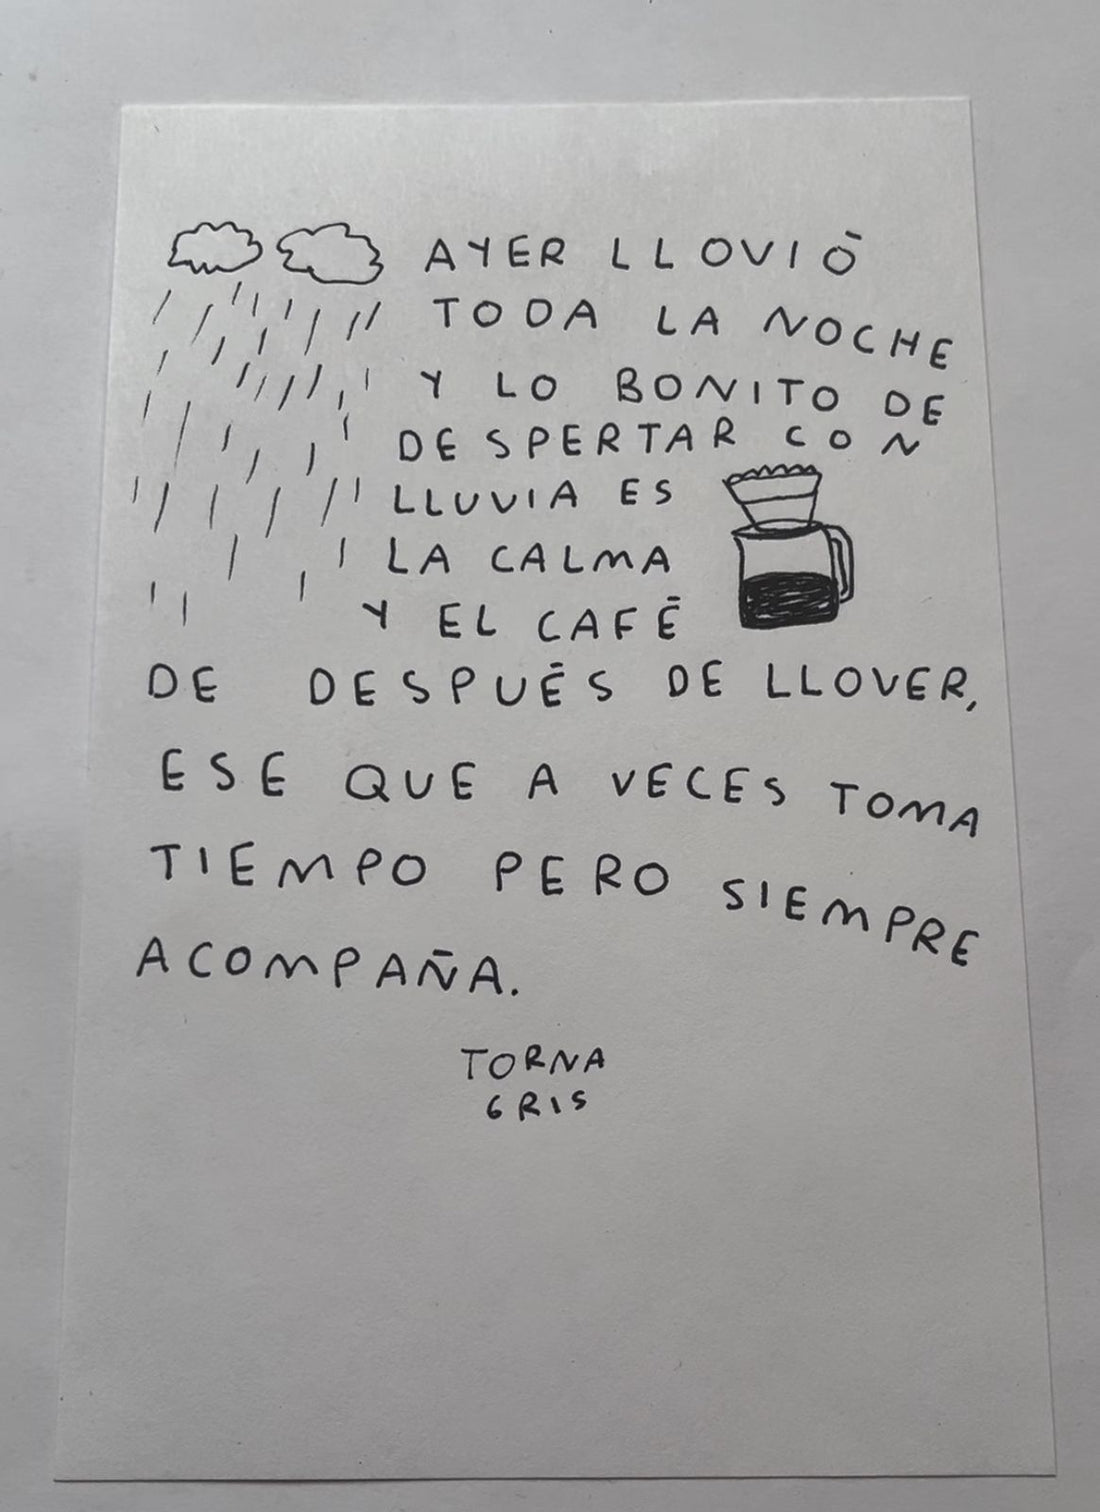 AYER LLOVIÓ
TODA LA NOCHE
Y LO BONITO DE
DESPERTAR CON
LLUVIA ES
LA CALMA
Y EL CAFÉ
DE DESPUÉS DE LLOVER,
ESE QUE A VECES TOMA
TIEMPO PERO SIEMPRE
ACOMPAÑA.
TORNA
GRIS